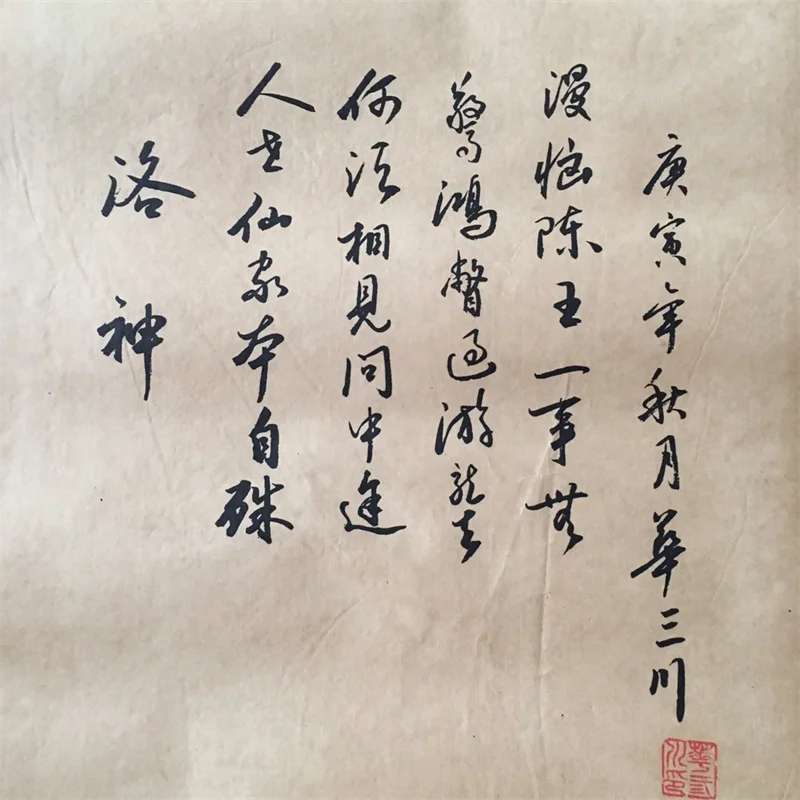 洛神
人世仙家本自殊
何須相見問中途
驚鴻瞥過游龍去
漫惱陳王一事無
庚寅年秋月華三川
華三川印